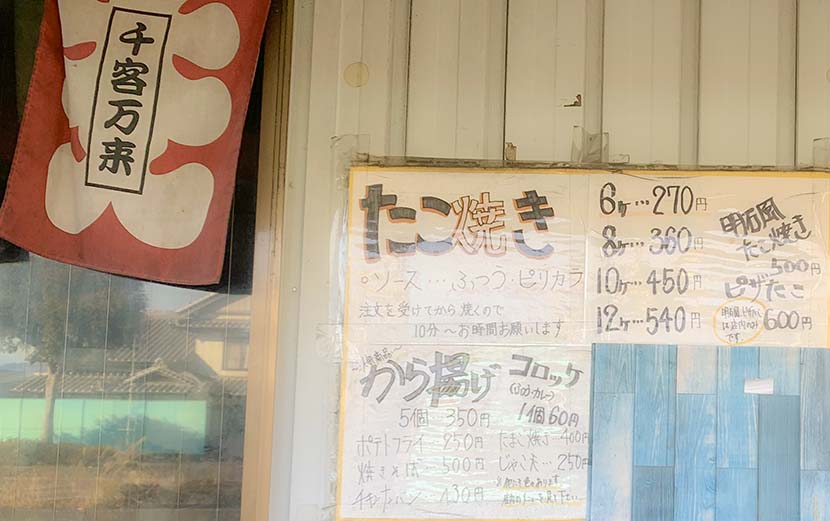 千客万来
たこ焼き
ソース…ふつう・ピリカラ
注文を受けてから焼くので
10分〜お時間お願いします
6ヶ…270円
8ヶ…360円
10ヶ…450円
12ヶ…540円
明石風
たこ焼き
500円
ピザたこ
600円
から揚げ
5個 350円
ポテトフライ 250円
焼きそば 500円
チキンカツパン 430円
コロッケ
1個60円
たまご焼き…400円
じゃこ天…250円